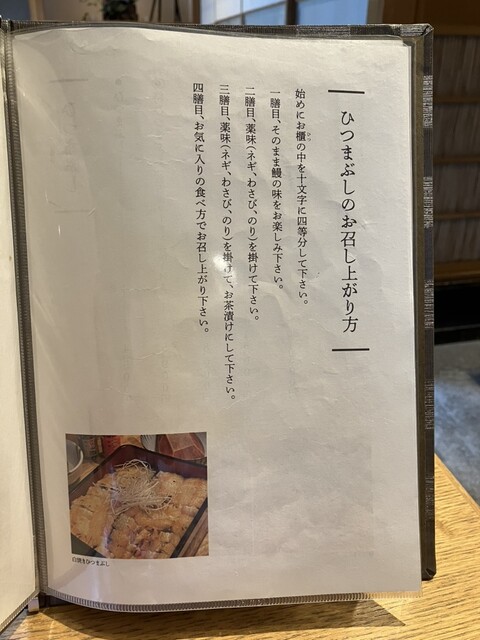 ひつまぶしのお召し上がり方
始めにお櫃の中を十文字に四等分して下さい。
ひつ
一膳目、そのまま鰻の味をお楽しみ下さい。
二膳目、薬味(ネギ、わさび、のり)を掛けて下さい。
三膳目、薬味(ネギ、わさび、のり)を掛けて、お茶漬けにして下さい。
四膳目、お気に入りの食べ方でお召し上がり下さい。
白焼きひつまぶし